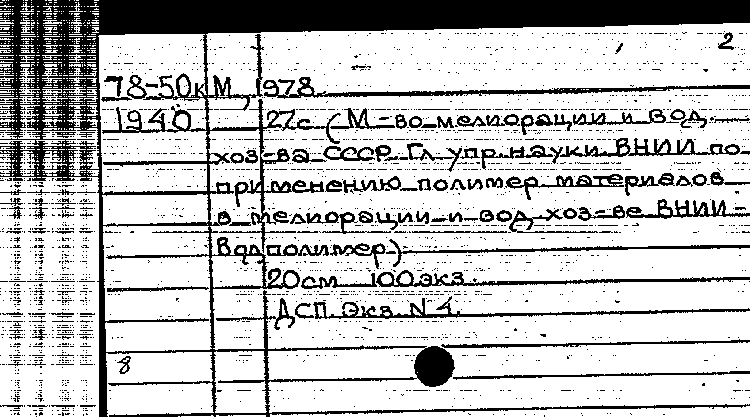 2
78-50к М, 1978
1940 27с (М-во мелиорации и вод.
хоз-ва СССР. Гл. упр. науки. ВНИИ по
применению полимер. материалов
в мелиорации и вод. хоз-ве ВНИИ-
Водполимер)
20см 100экз.
ДСП. Экз. N 4.
8